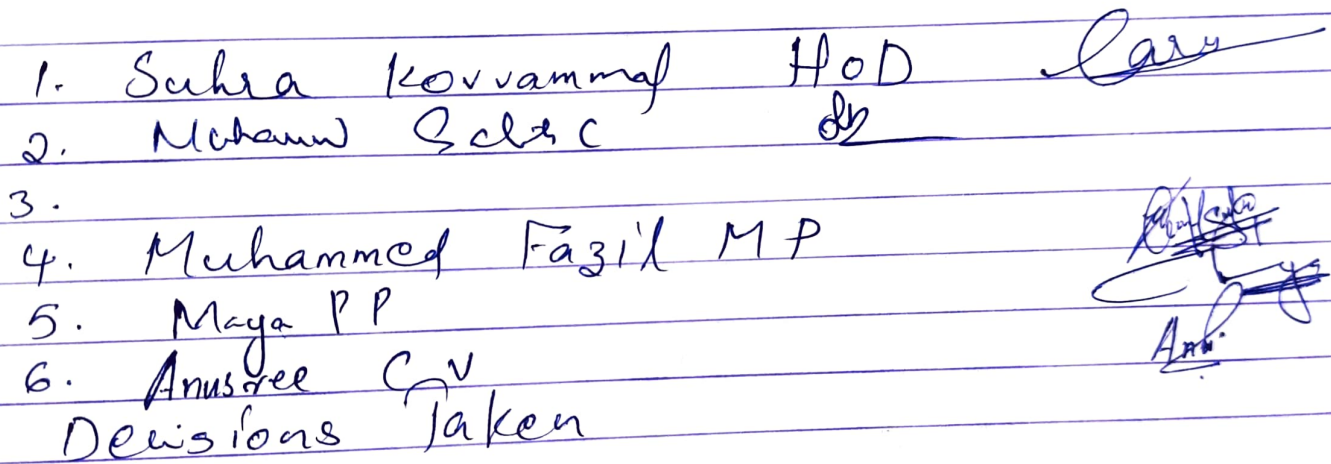 1. Suhra Kovvammal HoD
2.
3.
4. Muhammed Fazil M P
5. Maya P P
6. Anusree C V
Decisions Taken